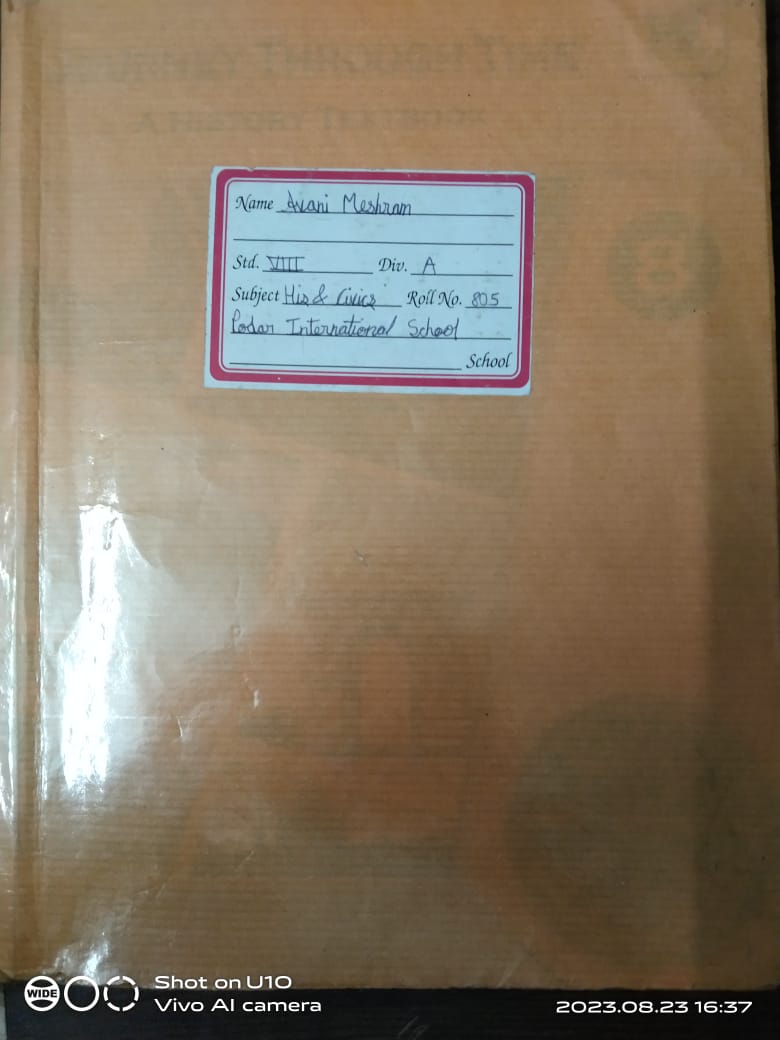 JOURNEY THROUGH TIME
A HISTORY TEXTBOOK
8
Name Avani Meshram
Std. VIII Div. A
Subject His & Civics Roll No. 805
Podar International School
School
WIDE
Shot on U10
Vivo AI camera
2023.08.23 16:37